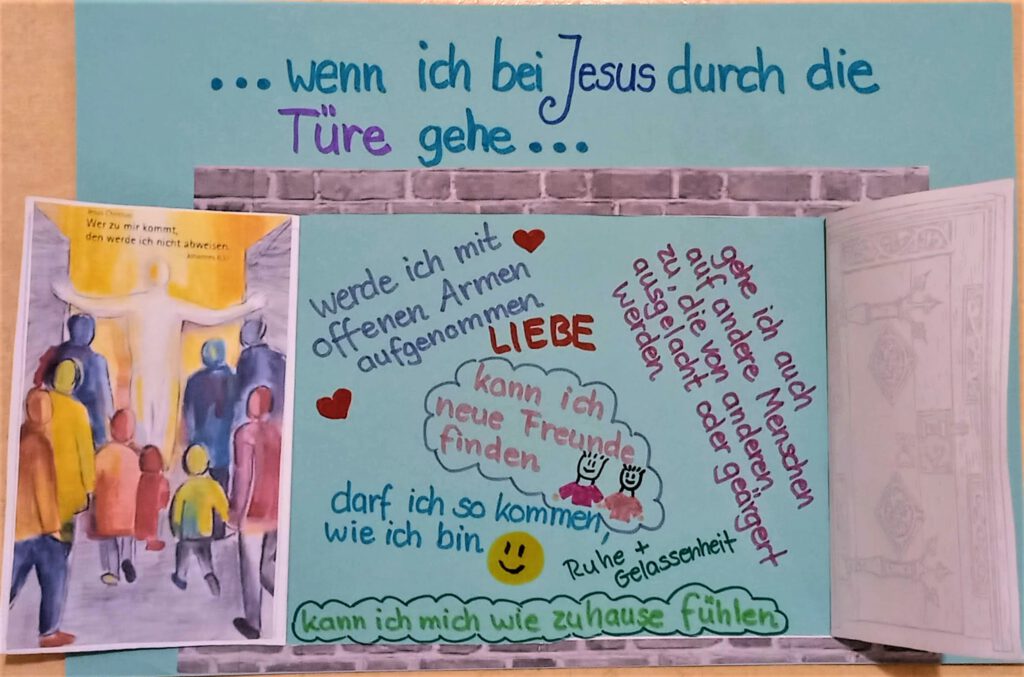 ...wenn ich bei Jesus durch die
Türe gehe...
Jesus Christus:
Wer zu mir kommt,
den werde ich nicht abweisen.
Johannes 6,37
werde ich mit
offenen Armen
aufgenommen
LIEBE
kann ich
neue Freunde
finden
gehe ich auch
auf andere Menschen
zu, die von anderen
ausgelacht oder geärgert
werden.
darf ich so kommen,
wie ich bin
Ruhe +
Gelassenheit
kann ich mich wie zuhause fühlen